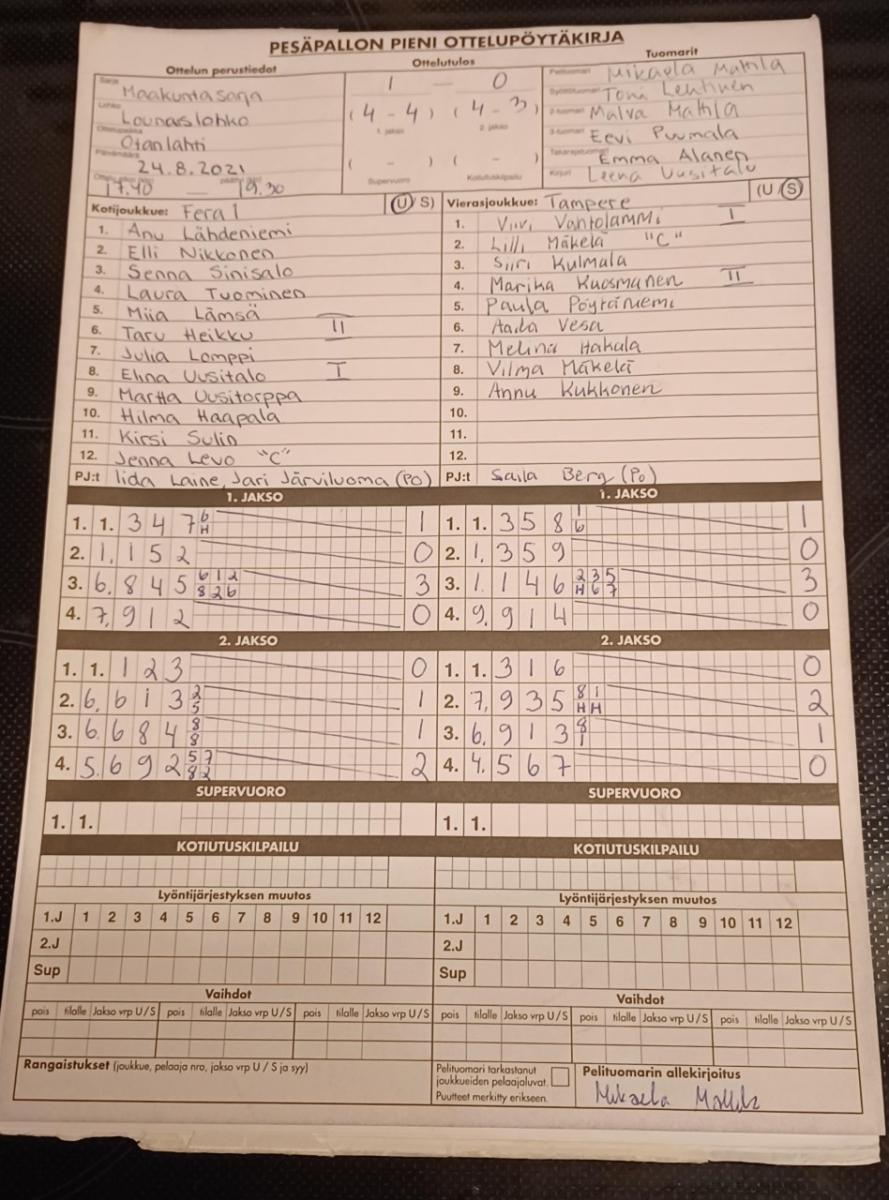 PESÄPALLON PIENI OTTELUPÖYTÄKIRJA
Ottelun perustiedot Ottelutulos Tuomarit
Sarja Maakuntasarja
Lohko Lounaislohko
Ottelupaikka Otanlahti
Päivämäärä 24.8.2021
17.40 — 19.30
1 — 0
(4 - 4) (4 - 3)
1. jakso 2. jakso
( - ) ( - )
Supervuoro Kotiutuskilpailu
Pelituomari Mikaela Mattila
Syöttötuomari Toni Lehtinen
2-tuomari Malva Mattila
3-tuomari Eevi Puumala
Takarajatuomari Emma Alanen
Kirjuri Leena Uusitalo
Kotijoukkue: Fera 1 (U S)
1. Anu Lähdeniemi
2. Elli Nikkonen
3. Senna Sinisalo
4. Laura Tuominen
5. Miia Lämsä
6. Taru Heikku II
7. Julia Lomppi
8. Elina Uusitalo I
9. Martta Uusitorppa
10. Hilma Haapala
11. Kirsi Sulin
12. Jenna Levo "C"
PJ:t Iida Laine, Jari Järviluoma (PO)
Vierasjoukkue: Tampere (U S)
1. Viivi Vantolammi I
2. Lilli Mäkelä "C"
3. Siiri Kulmala
4. Marika Kuosmanen II
5. Paula Pöytäniemi
6. Aada Vesa
7. Melina Hakala
8. Vilma Mäkelä
9. Annu Kukkonen
10.
11.
12.
PJ:t Saila Berg (PO)
1. JAKSO
1. 1. 3 4 7 6 H 1
2. 1. 1 5 2 0
3. 6. 8 4 5 6 1 2 8 2 6 3
4. 7. 9 1 2 0
2. JAKSO
1. 1. 1 2 3 0
2. 6. 6 1 3 2 5 1
3. 6. 6 8 4 8 8 1
4. 5. 6 9 2 5 7 8 2 2
SUPERVUORO
1. 1.
KOTIUTUSKILPAILU
1. JAKSO
1. 1. 3 5 8 1 6 1
2. 1. 3 5 9 0
3. 1. 1 4 6 2 3 5 H 6 7 3
4. 9. 9 1 4 0
2. JAKSO
1. 1. 3 1 6 0
2. 7. 9 3 5 8 1 H H 2
3. 6. 9 1 3 8 1 1
4. 4. 5 6 7 0
SUPERVUORO
1. 1.
KOTIUTUSKILPAILU
Lyöntijärjestyksen muutos
1.J 1 2 3 4 5 6 7 8 9 10 11 12
2.J
Sup
Lyöntijärjestyksen muutos
1.J 1 2 3 4 5 6 7 8 9 10 11 12
2.J
Sup
Vaihdot
pois tilalle Jakso vrp U/S pois tilalle Jakso vrp U/S pois tilalle Jakso vrp U/S
Vaihdot
pois tilalle Jakso vrp U/S pois tilalle Jakso vrp U/S pois tilalle Jakso vrp U/S
Rangaistukset (joukkue, pelaaja nro, jakso vrp U / S ja syy)
Pelituomari tarkastanut
joukkueiden pelaajaluvat.
Puutteet merkitty erikseen.
Pelituomarin allekirjoitus
Mikaela Mattila